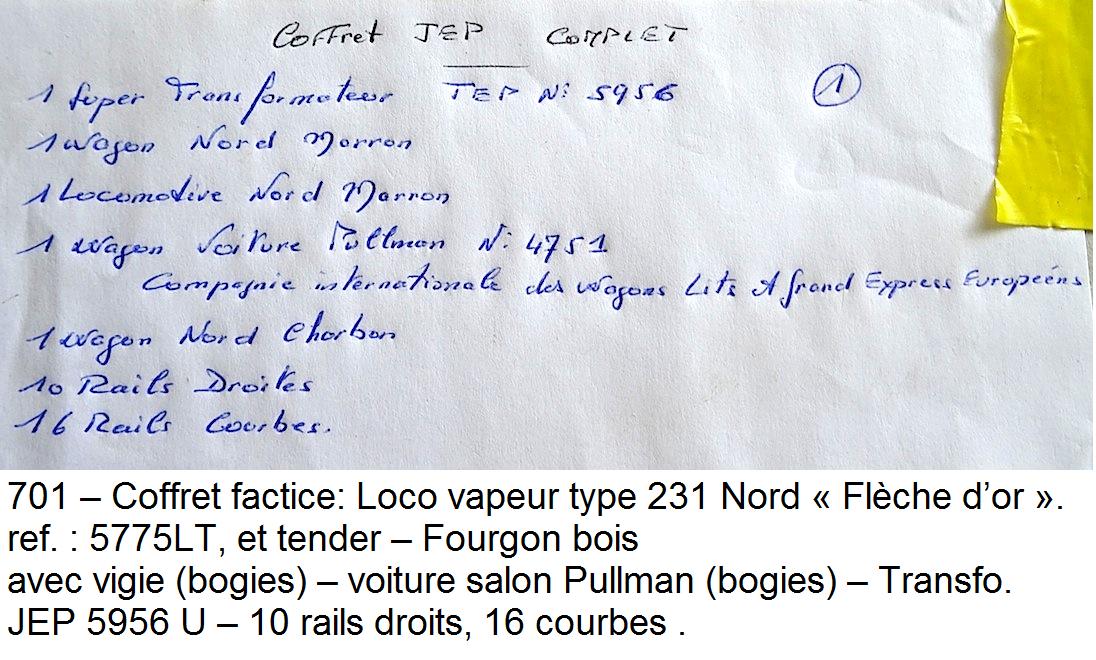 Coffret JEP COMPLET
1 Super Transformateur JEP N: 5956
1
1 Wagon Nord Marron
1 Locomotive Nord Marron
1 Wagon Voiture Pullman N: 4751
Compagnie internationale des Wagons Lits & grand Express Européens
1 Wagon Nord Charbon
10 Rails Droites
16 Rails Courbes.
701 – Coffret factice: Loco vapeur type 231 Nord « Flèche d’or ».
ref. : 5775LT, et tender – Fourgon bois
avec vigie (bogies) – voiture salon Pullman (bogies) – Transfo.
JEP 5956 U – 10 rails droits, 16 courbes .